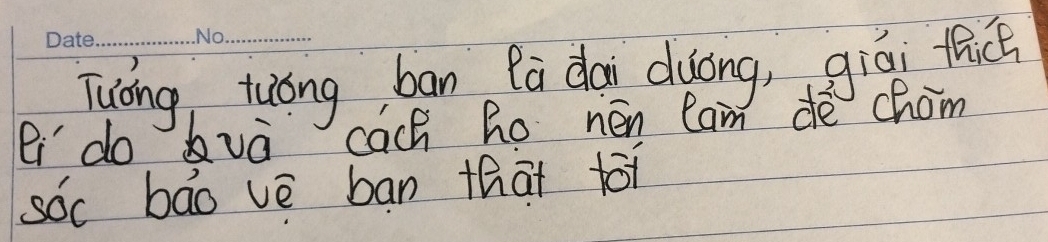 Date.................No.................
Tưởng tượng bạn là đại dương, giải thích
lí do và cách họ nên làm để chăm
sóc bảo vệ bạn thật tốt